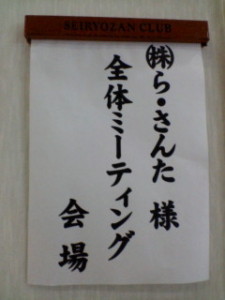 SEIRYOZAN CLUB
㈱ら・さんた 様
全体ミーティング
会場